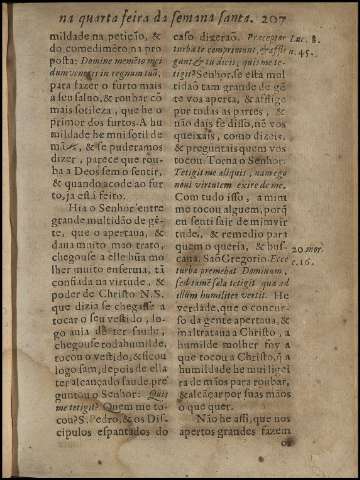 na quarta feira da semana santa. 207
mildade na petição, &
do comedimẽto na pro
posta: Domine memẽto mei
dum veneris in regnum tuũ,
para fazer o furto mais
a seu saluo, & roubar cõ
mais sotileza, que he o
primor dos furtos. A hu
mildade he mui sotil de
mãos, & se puderamos
dizer, parece que rou-
ba a Deos sem o sentir,
& quando acode ao fur
to, ja está feito.
Hia o Senhor entre
grande multidão de gẽ-
te, que o apertaua, &
daua muito mao trato,
chegouse a elle hũa mo
lher muito enferma, tã
confiada na virtude, &
poder de Christo N. S.
que dizia se chegasse a
tocar o seu vestido, lo-
go auia de ter saude,
chegouse toda humilde,
tocou o vestido, & ficou
logo sam, depois de ella
ter alcançado saude pre
guntou o Senhor: Quis
me tetigit? Quem me to-
cou? S. Pedro, & os Dis-
cipulos espantados do
caso dizerão. Præceptor
turba te comprimunt, & affli
gunt & tu dicis, quis me te-
tigit? Senhor, se esta mul
tidão tam grande de gẽ
te vos aperta, & afflige
por todas as partes, &
não dais fe disso, nẽ vos
queixais, como dizeis,
& preguntais quem vos
tocou. Torna o Senhor.
Tetigit me aliquis, nam ego
noui virtutem exire de me.
Com tudo isso, a mim
me tocou alguem, porq̃
eu senti sair de mim vir
tude, & remedio para
quem o queria, & bus-
caua. Saõ Gregorio. Ecce
turba premebat Dominum,
sed tamẽ sola tetigit quæ ad
illum humiliter venit. He
verdade, que o concur-
so da gente apertaua, &
maltrataua a Christo, a
humilde molher foy a
que tocou a Christo, q̃ a
humildade he mui ligei
ra de mãos para roubar,
& alcãçar por suas mãos
o que quer.
Não he assi, que nos
apertos grandes fazem
os
Luc. 8.
n. 45.
20 mor.
c. 16.